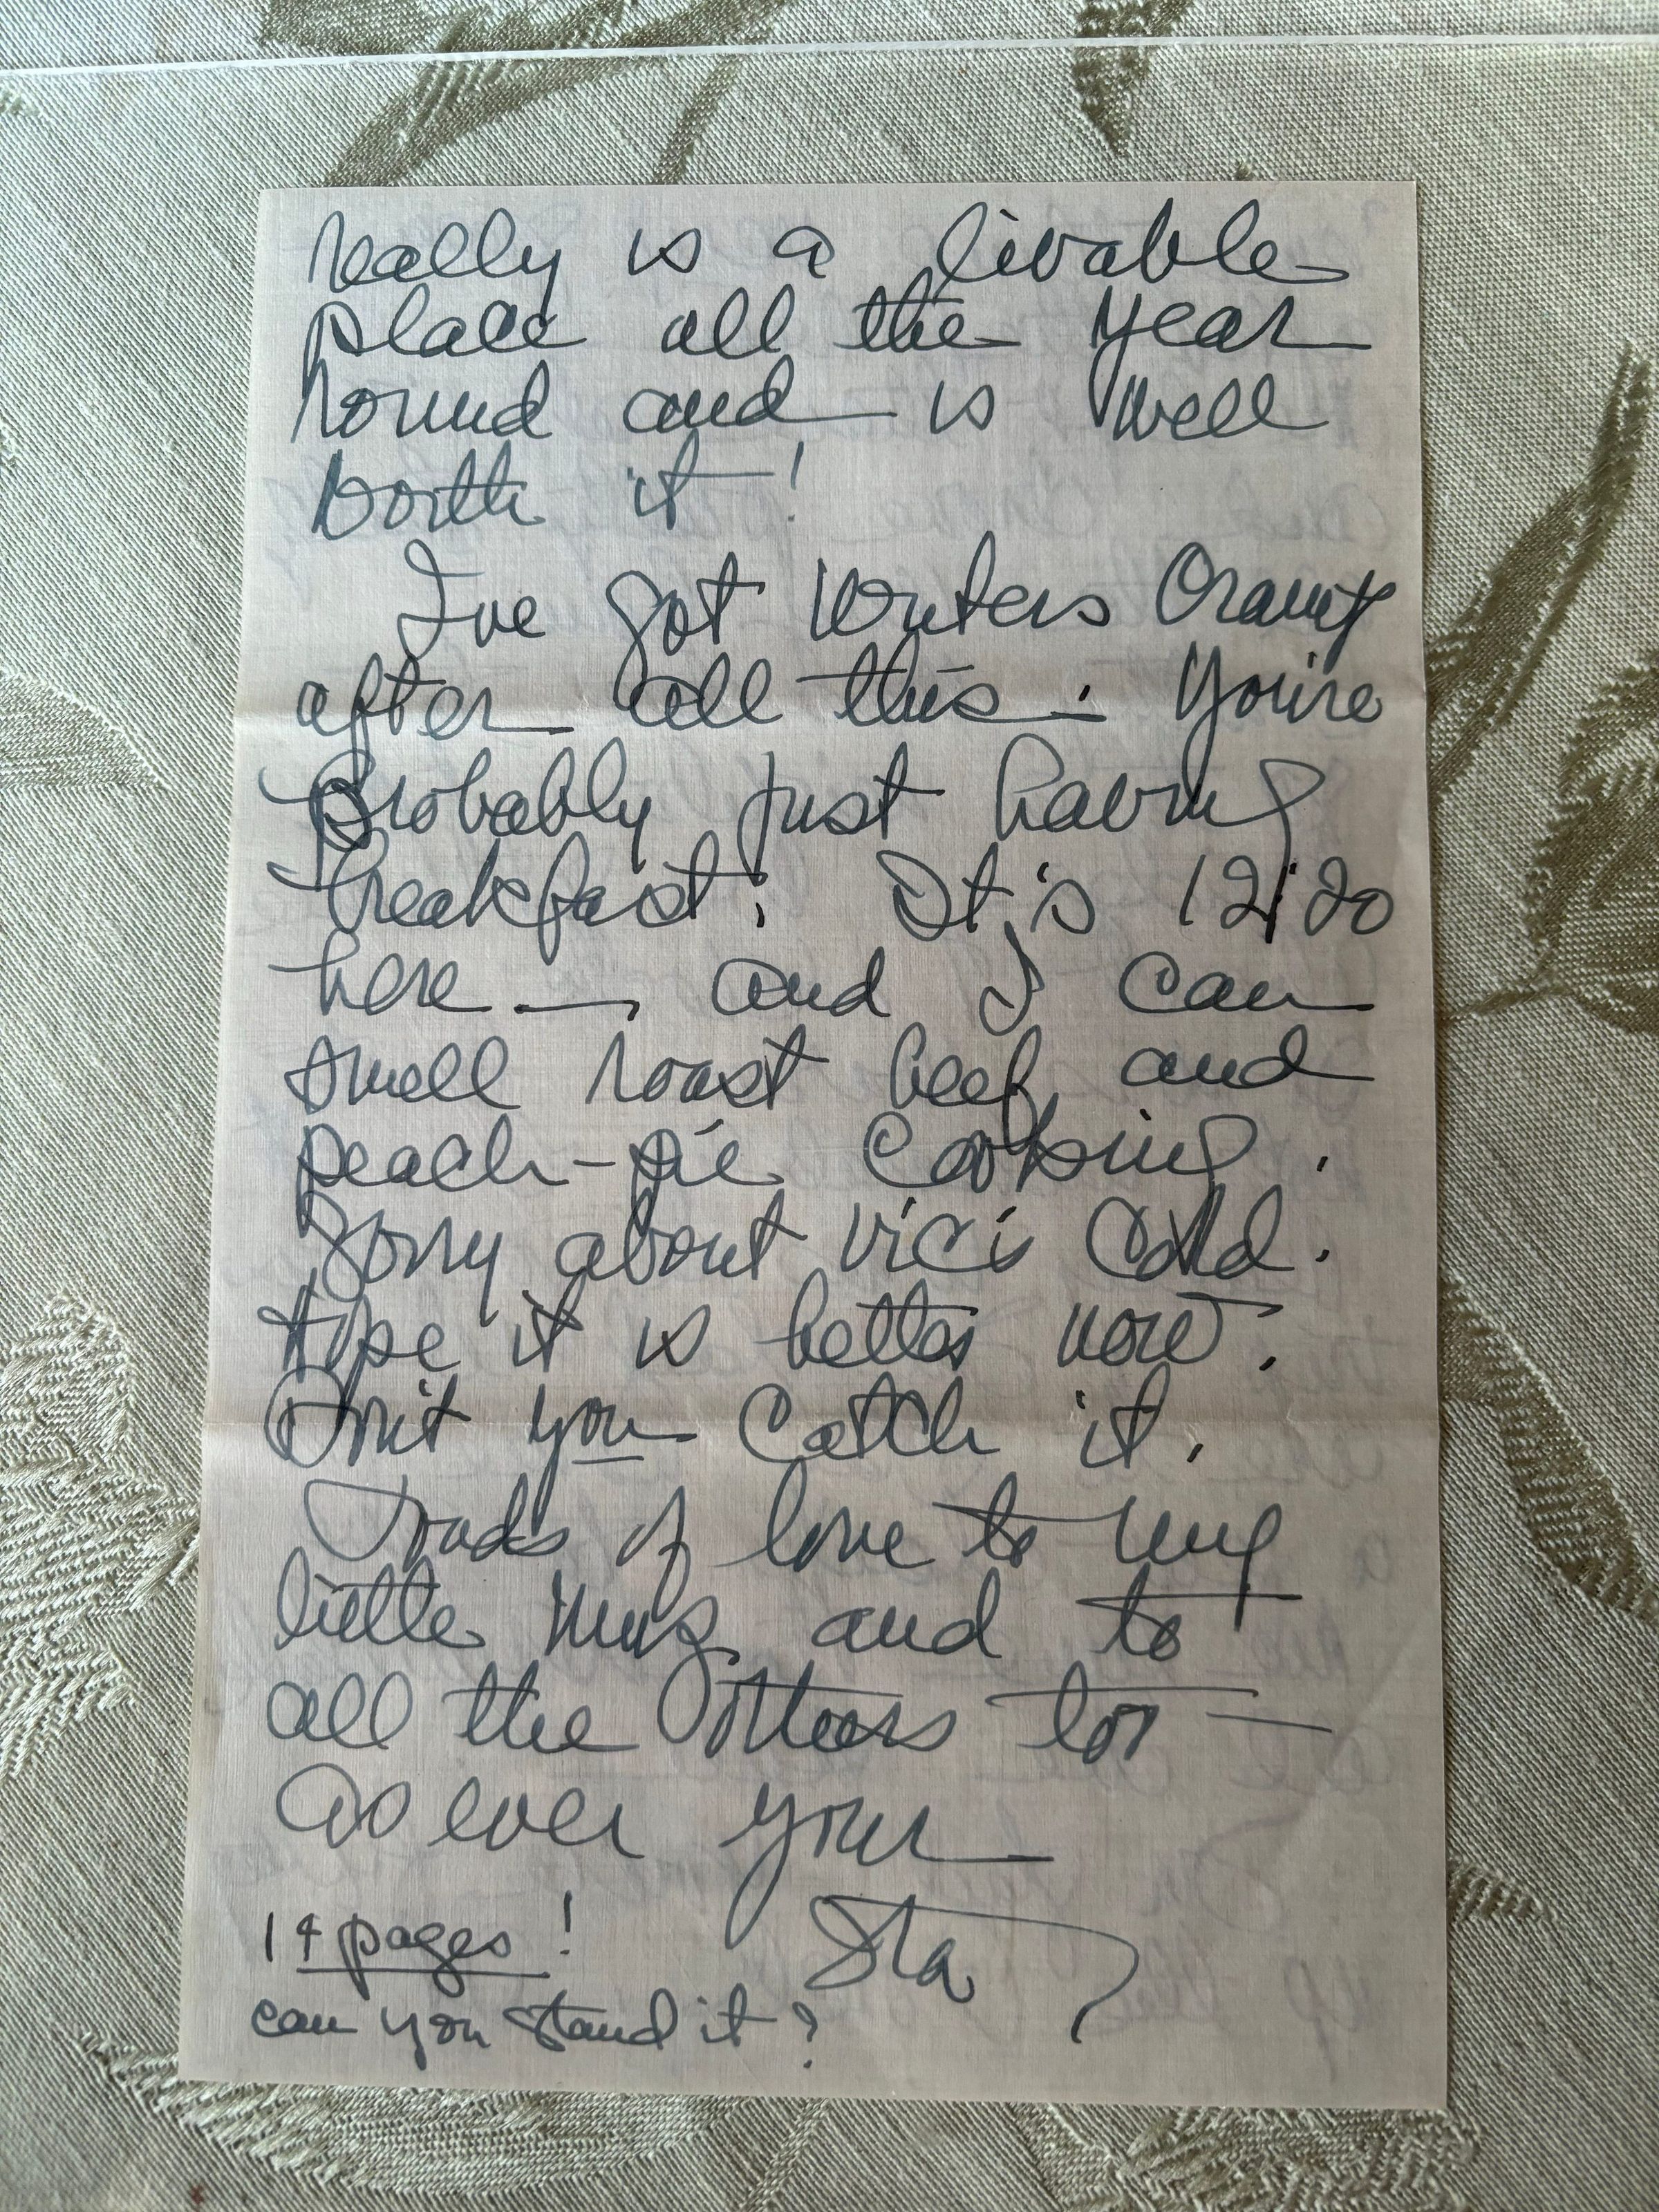 really is a livable
place all the year
round and is well
worth it!
I've got writers cramp
after all this. You're
probably just having
breakfast! It is 12:20
here — and I can
smell roast beef and
peach-pie cooking.
Sorry about Vici's Cold.
Hope it is better now.
Don't you catch it.
Loads of love to my
little and to
all the others too —
As ever your
Sta
14 pages!
can you stand it?